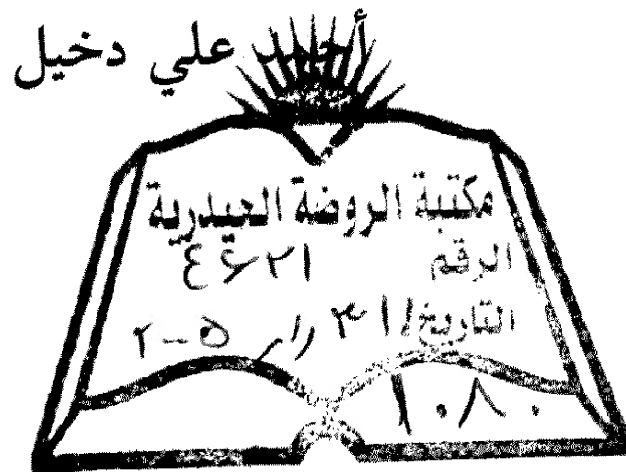 أحمد علي دخيل
مكتبة الروضة الحيدرية
الرقم
التاريخ
١٠٨٠